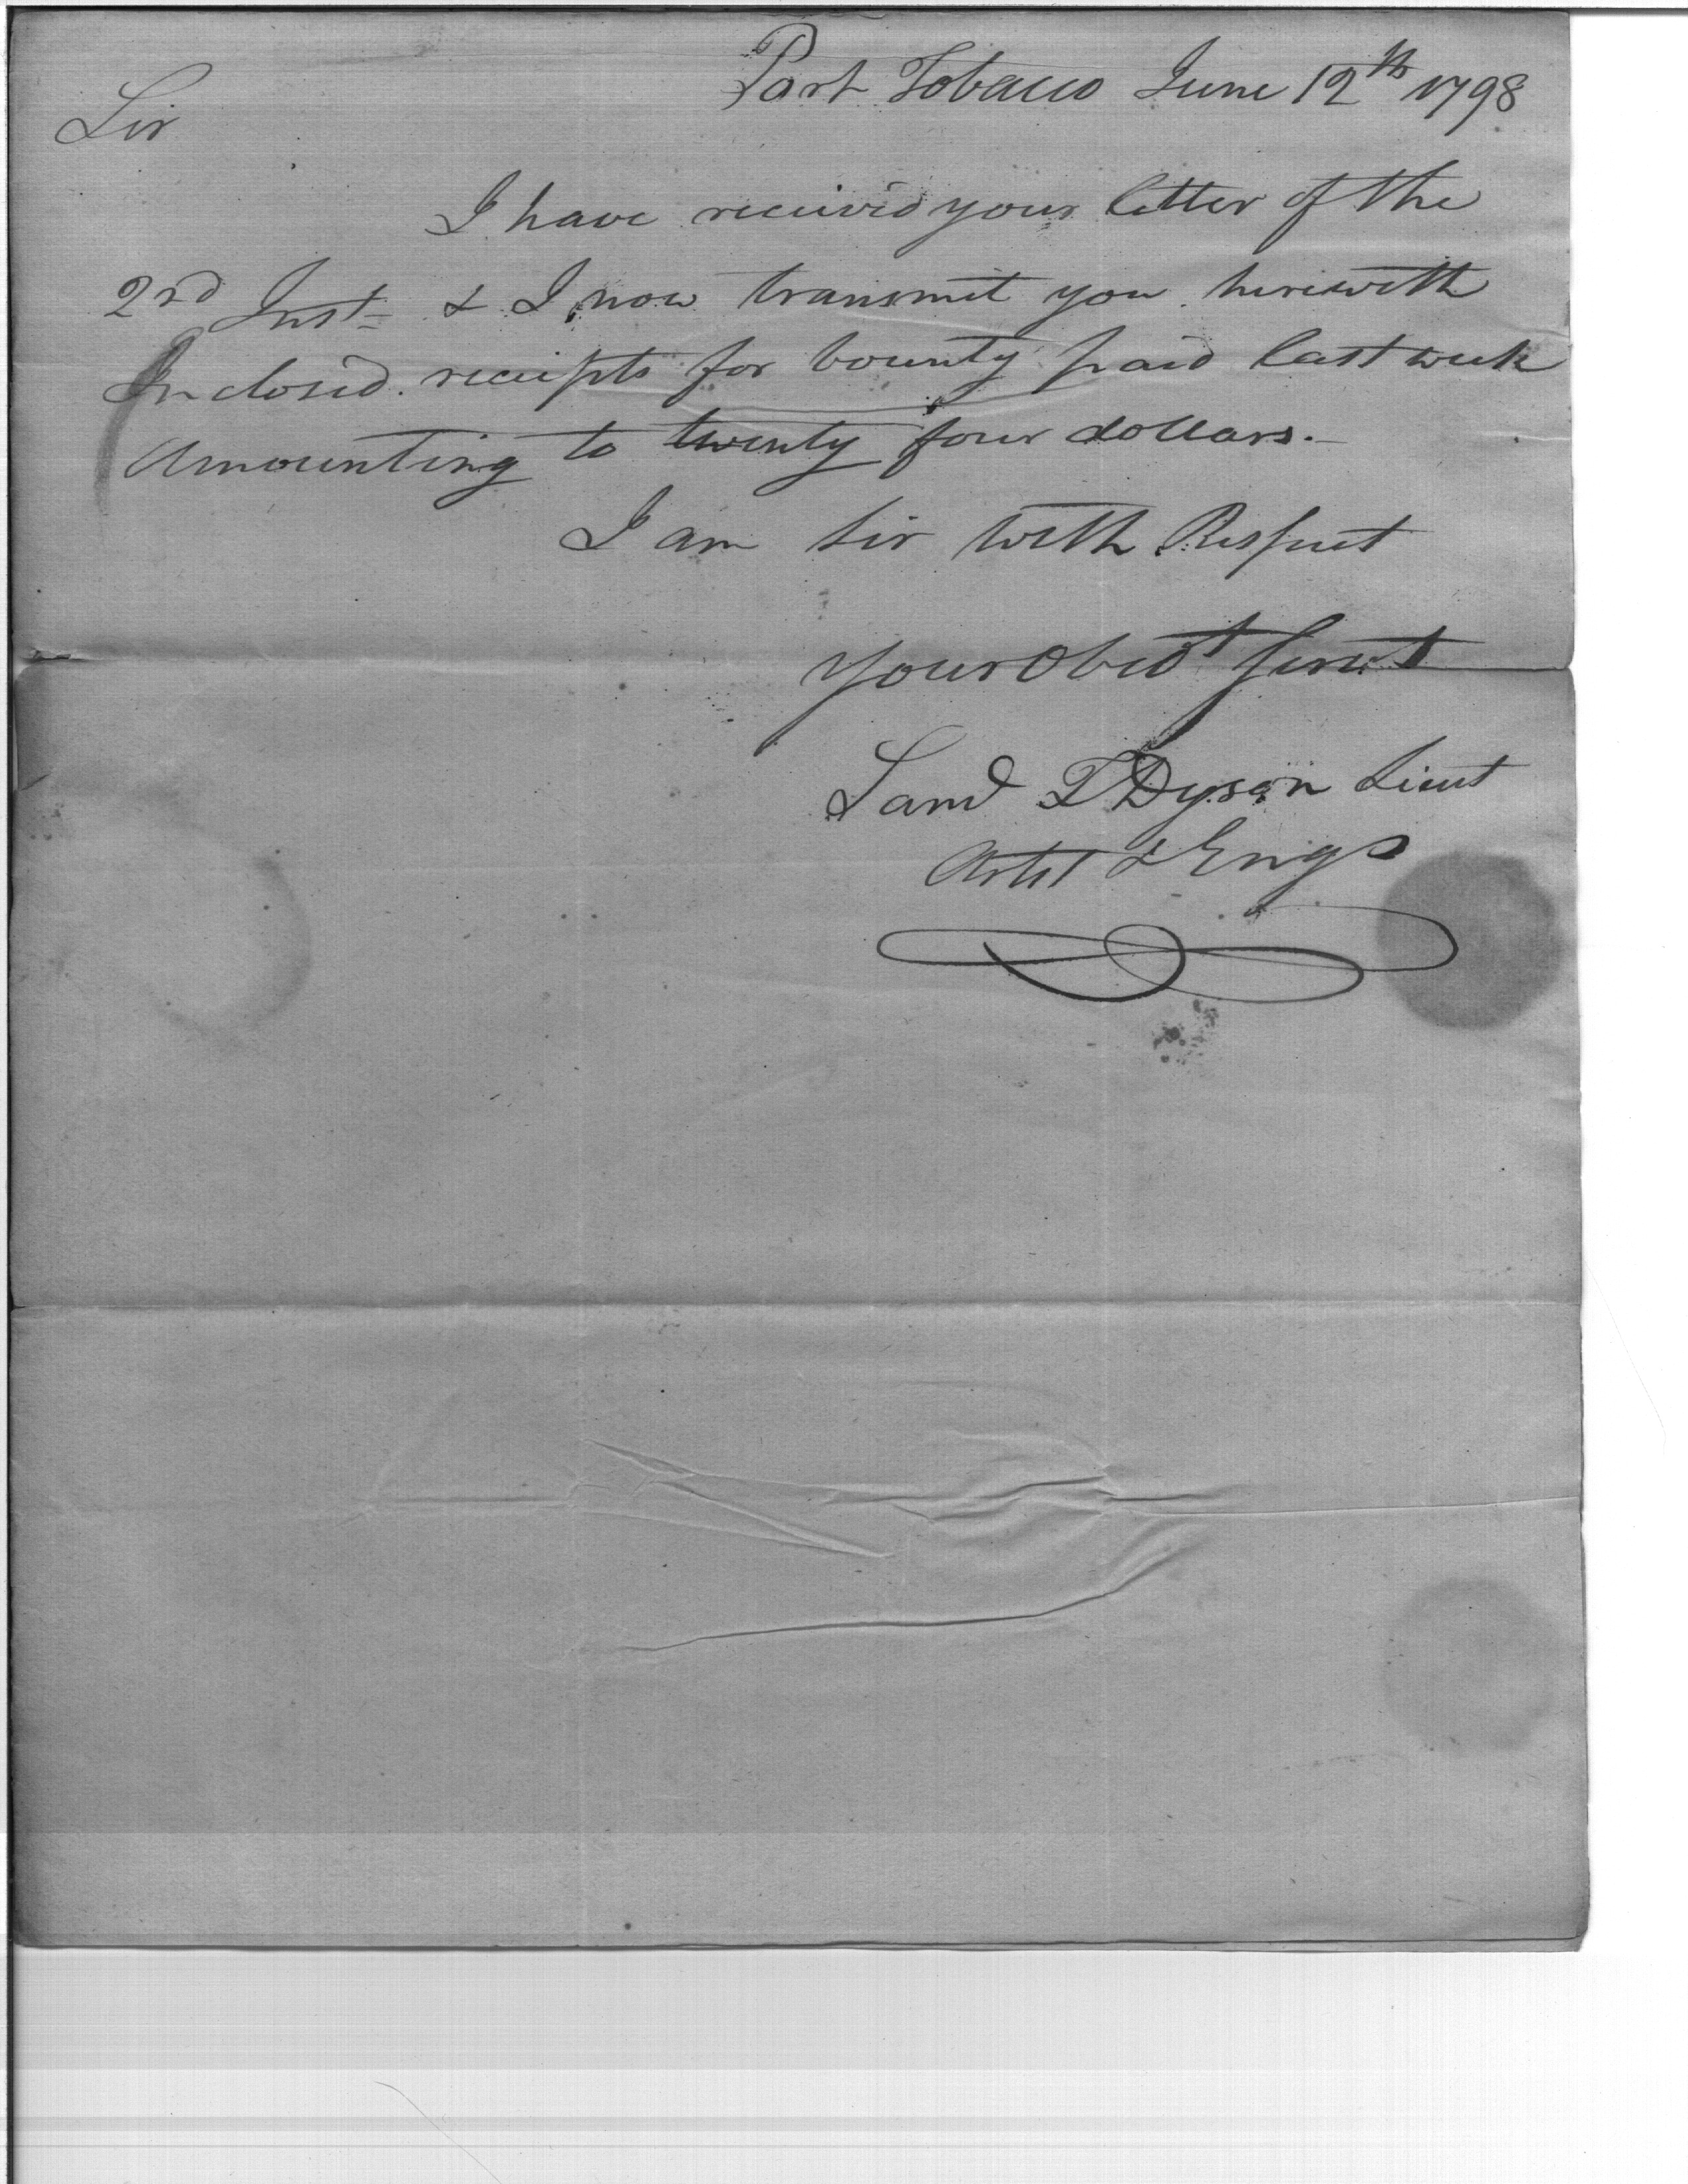 Port Tobacco June 12th 1798
Sir
I have received your letter of the
2nd Inst= & I now transmit you herewith
Inclosed. receipts for bounty paid last week
Amounting to twenty four dollars.
I am Sir With Respect
Your Obedt Servt
Saml T Dyson Lieut
Artil & Engs